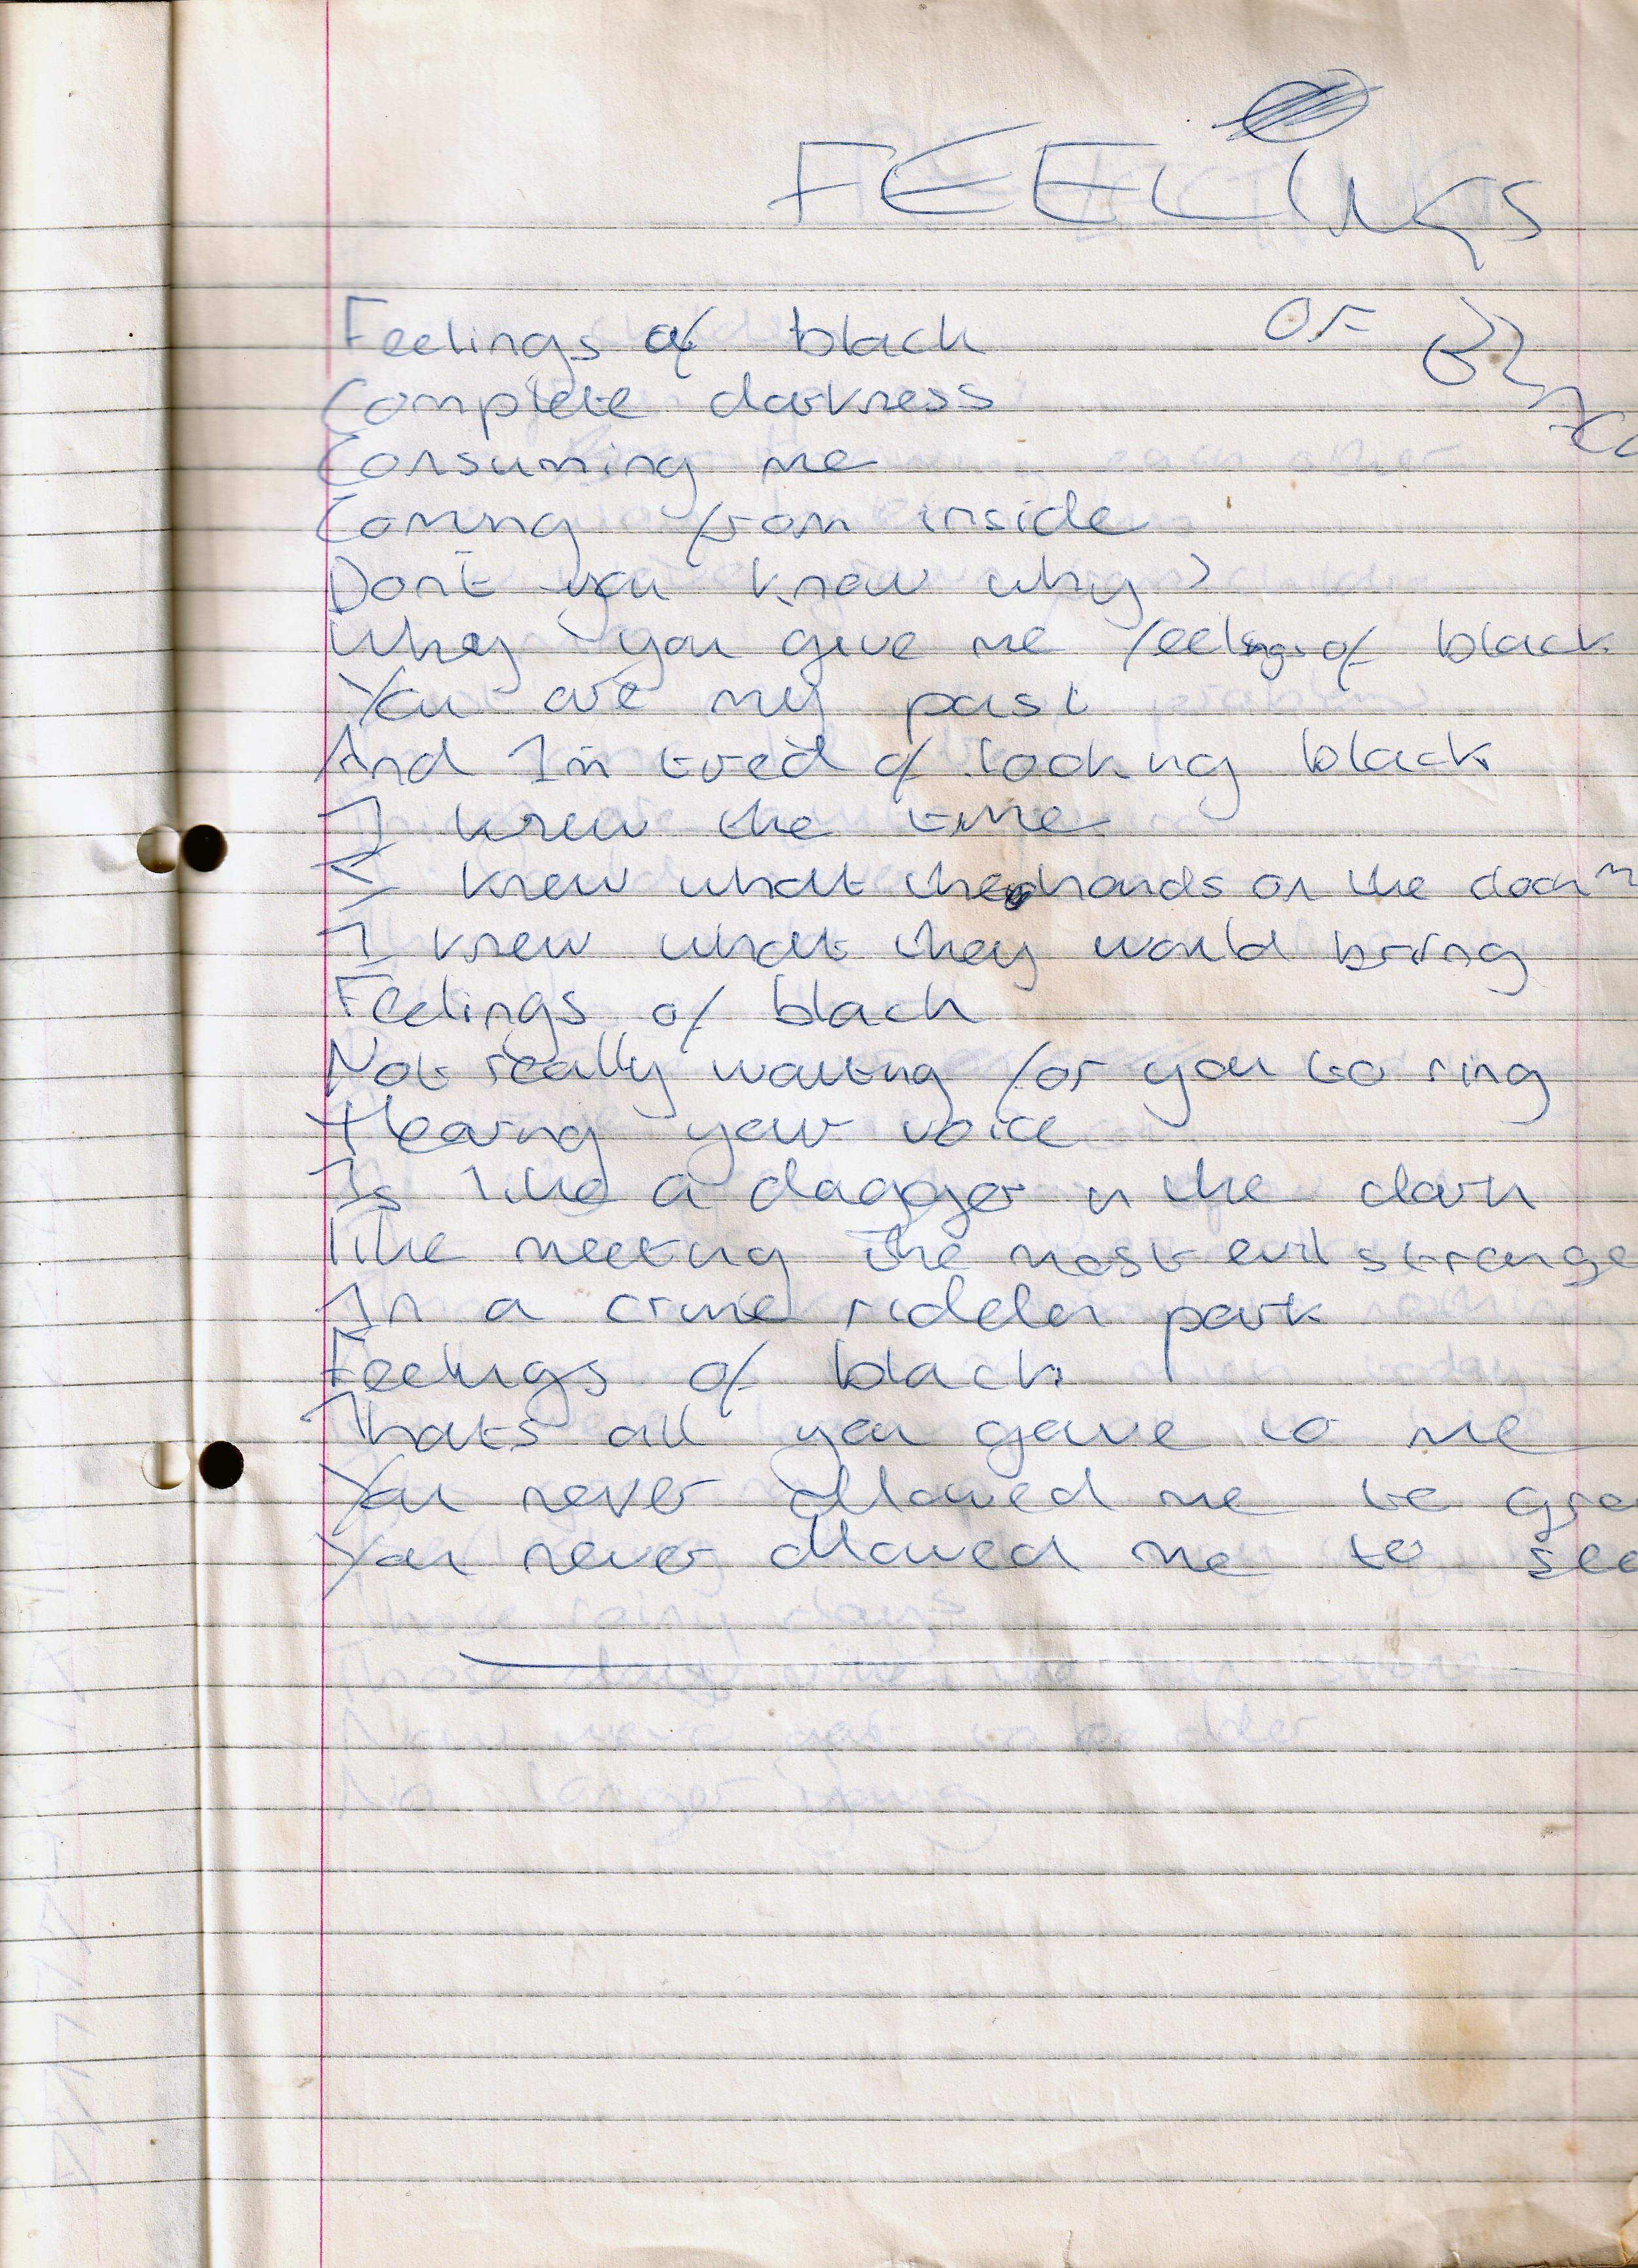 FEELINGS
OF
Feelings of black
Complete darkness
Consuming me
Coming from inside
Don't you know why?
Why you give me feelings of black
You are my past
And Im tired of looking black
I knew the time
I knew what the hands on the
I knew what they would bring
Feelings of black
Not really waiting for you to ring
Hearing your voice
Is like a dagger in the dark
like meeting the most evil strange
In a crime ridden park
Feelings of black
Thats all you gave to me
You never allowed me to
You never allowed me to see
Those rainy days
Those
to be older
No longer young